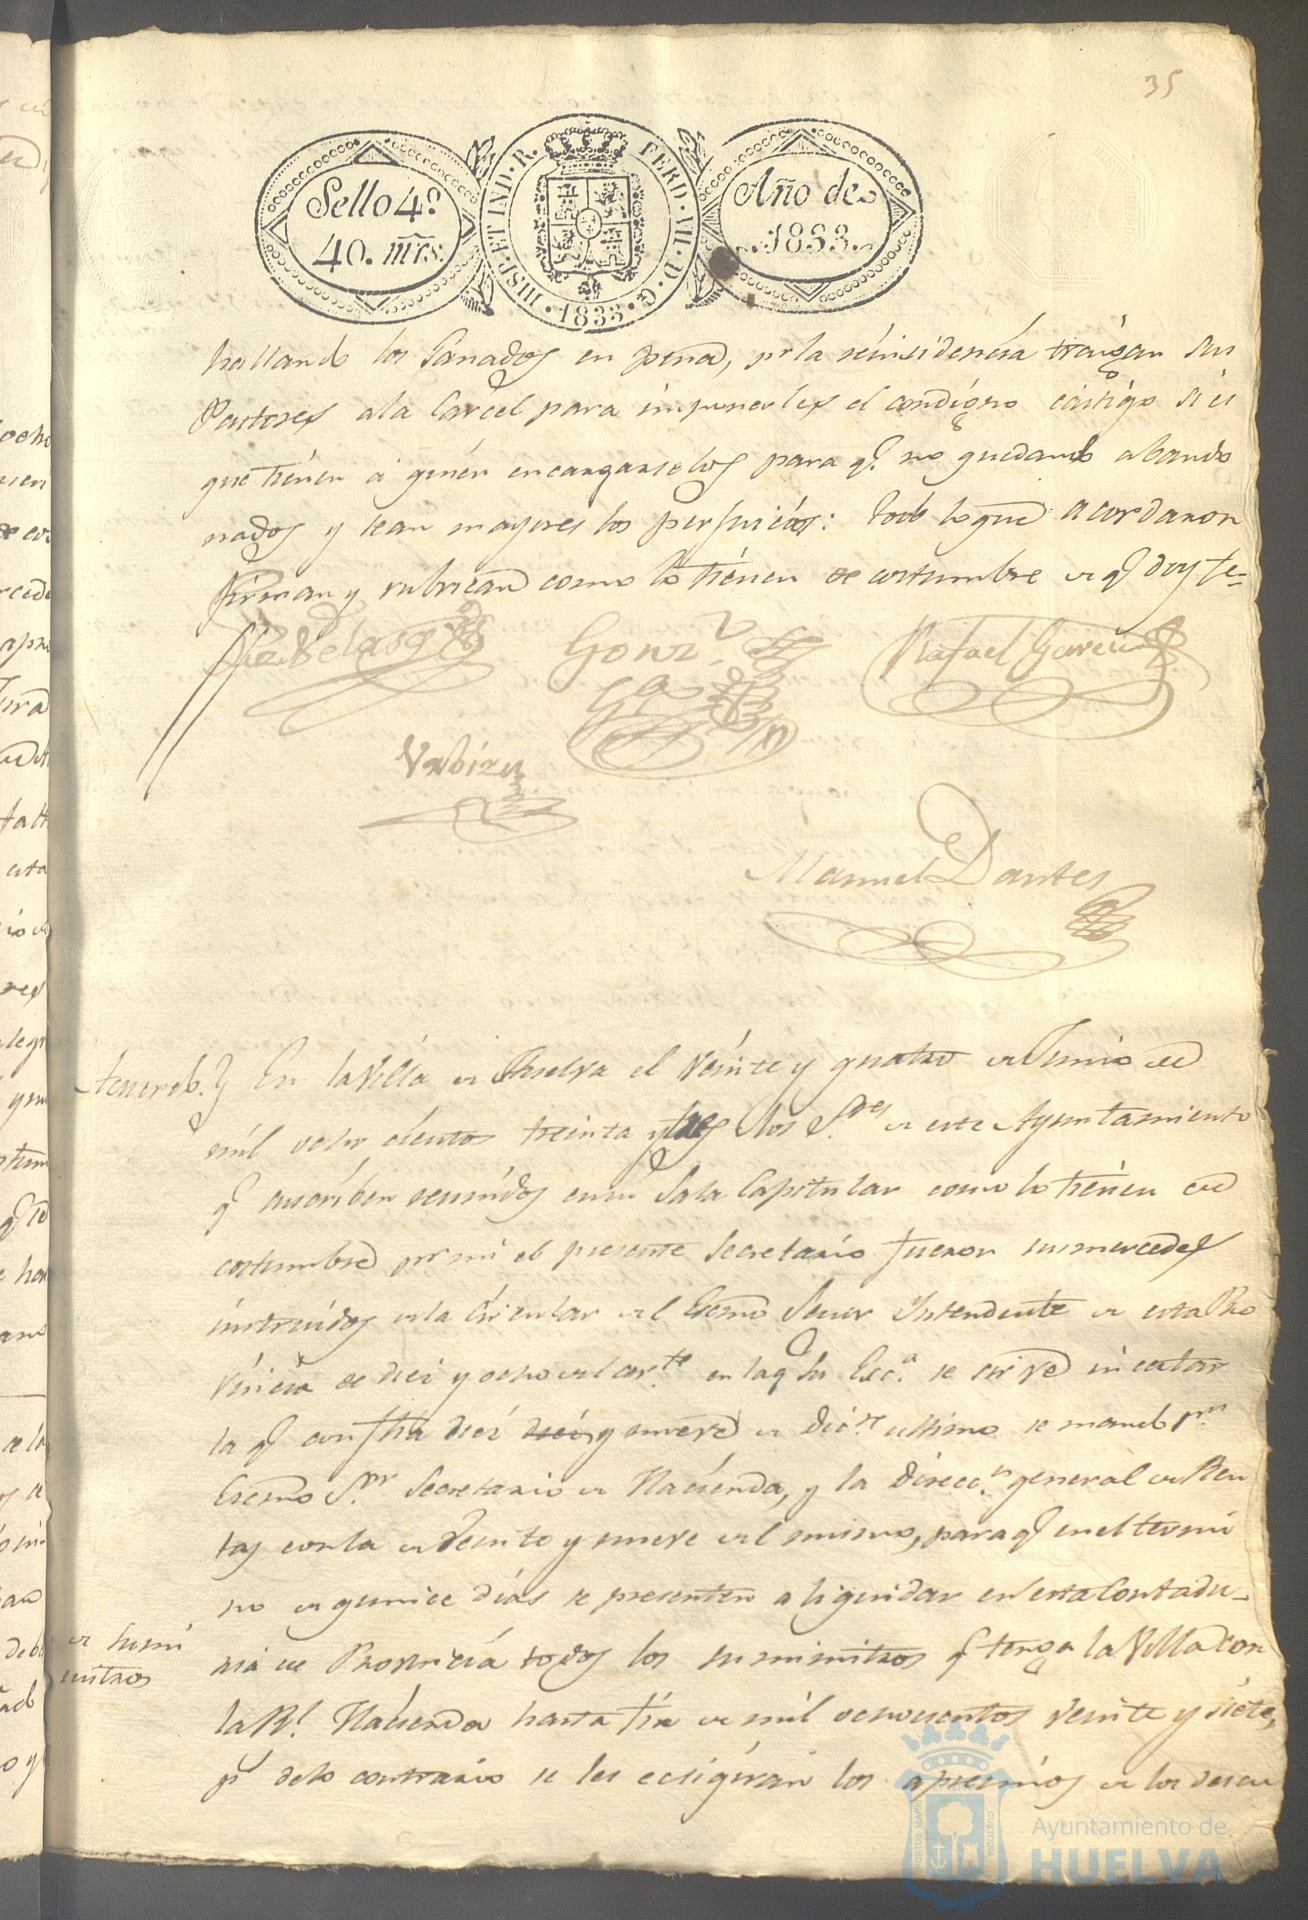 35
Sello 4º
40. mrs.
HISP. ET IND. R. FERD. VII. D. G. 1833.
Año de
1833.
hallando los Ganados en pena, pr la reinsidencia traigan sus
Pastores ala Carcel para imponerles el condigno castigo si es
que tienen a quien encargarselos para q.e no quedando abando
nados y sean mayores los perjuicios: todo lo que acordaron
firman y rubrican como lo tienen de costumbre de q.e doy fe=
Velasq
Gonz.
Rafael Garcia
Manuel Dantes
Acuerdo. En la Villa de Huelva el veinte y quatro de Junio de
mil ocho cientos treinta y tres los S.res de este Ayuntamiento
q suscriben reunidos en su Sala Capitular como lo tienen de
costumbre pr mi el presente Secretario fueron sus mercedes
instruidos de la Circular del Escmo Señor Intendente de esta Pro
vincia de diez y ocho del cor.te en la q Su Exc.a se sirve incertar
la q con fha diez diez y nueve de Dic.re ultimo se mando pr
Escmo S.or Secretario de Hacienda, y la Direcc.n general de Ren
tas con la de veinte y nueve del mismo, para q en el termi
no de quince dias se presenten a liquidar en esta Contadu-
de sumi
nistros
ria de Provincia todos los suministros q tenga la Villa con
la Rl. Hacienda hasta fin de mil ochocientos veinte y siete,
pr delo contrario se les ecsigiran los apremios de los descu
PORTUS MARIS CUSTODIA
Ayuntamiento de
HUELVA